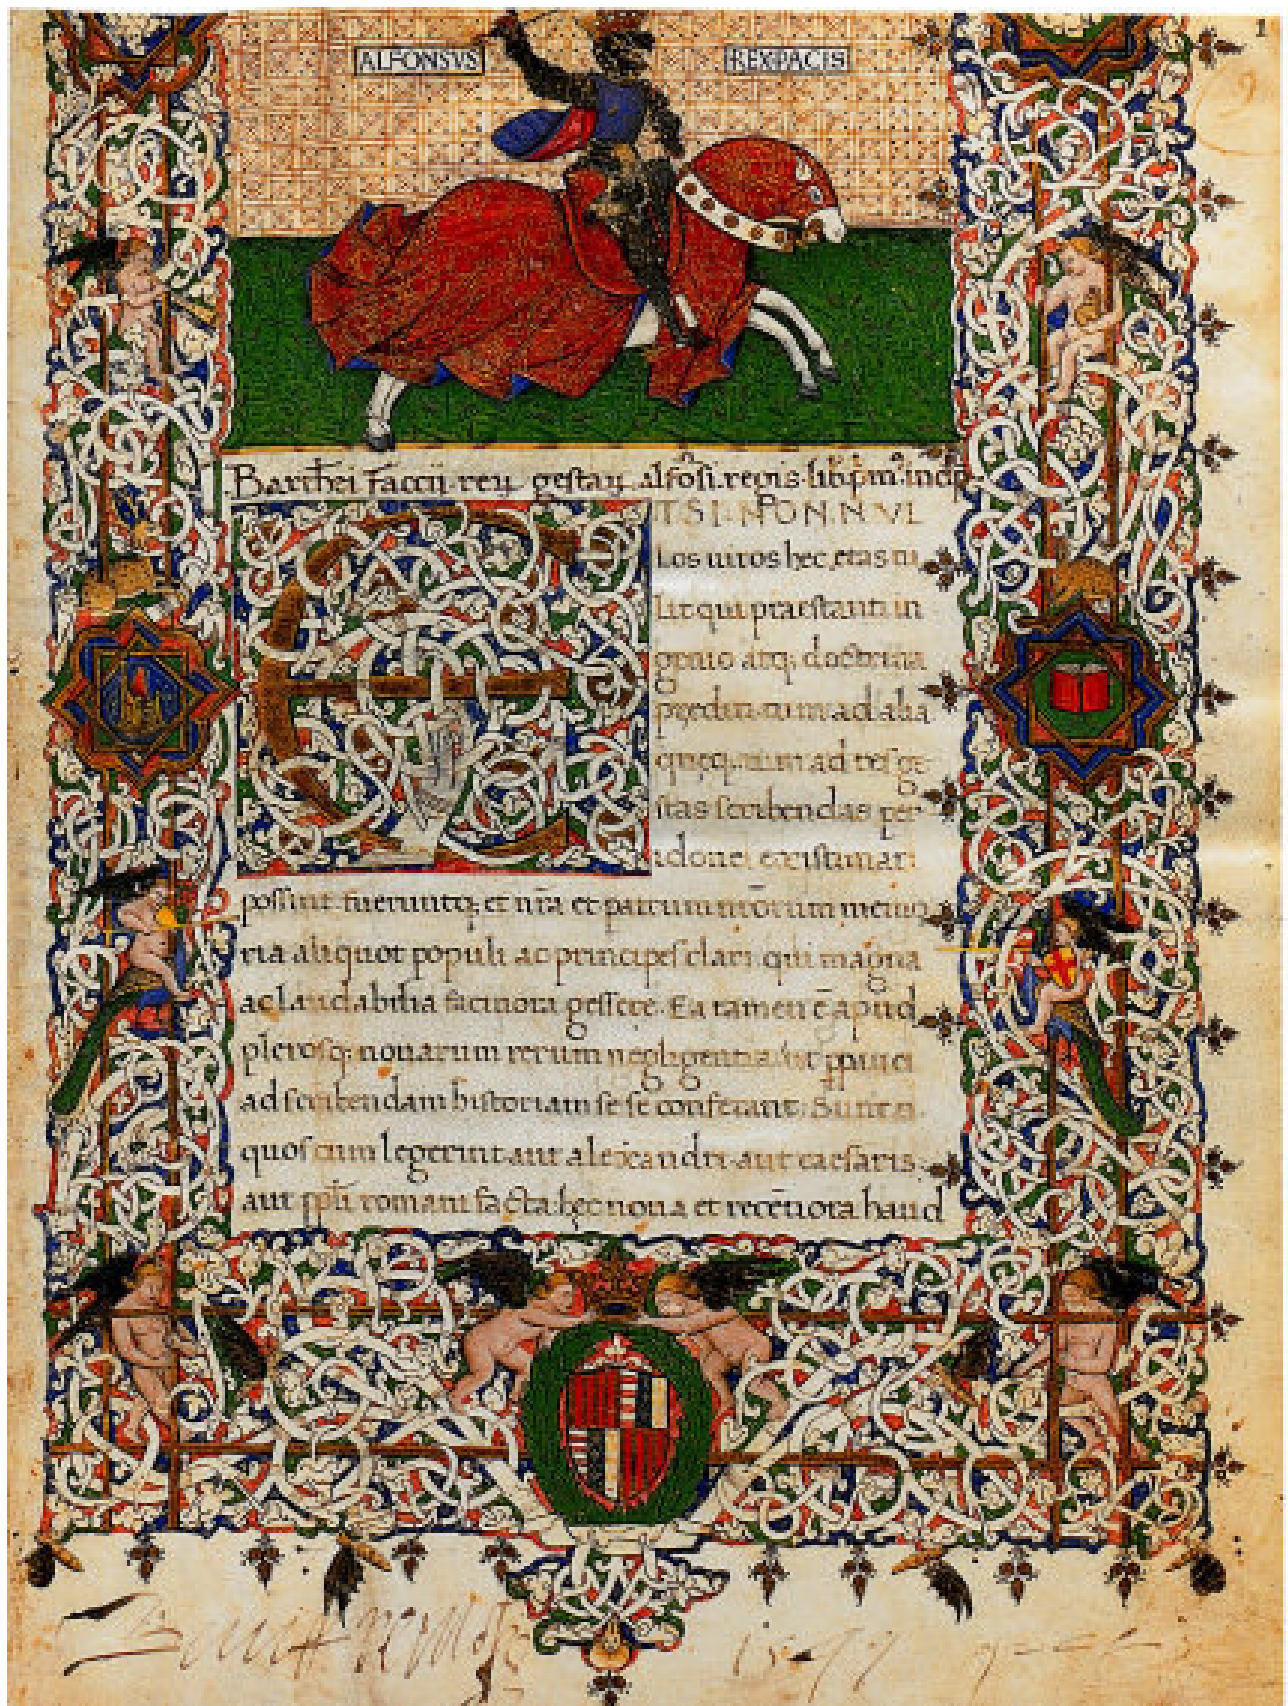 1
ALFONSVS REX PACIS
Barth̄ei faccii reꝝ gestaꝝ alfōsi regis lib pm incip
ETSI NONNVL
Los uiros hec etas tu
lit qui praestanti in
genio atq; doctrina
prediti tum ad alia
queq; tum ad res ge
stas scribendas per
idonei existimari
possint fueruntq; et nr̄a et patrum nr̄orum memo
ria aliquot populi ac principes clari qui magna
ac laudabilia facinora gessere. Ea tamen ē apud
plerosq; nouarum rerum negligentia ut
ad scribendam historiam se se conferant. Sunt
quos cum legerint aut alexandri aut caesaris
aut ppl̄i romani facta hec noua et recētiora haud